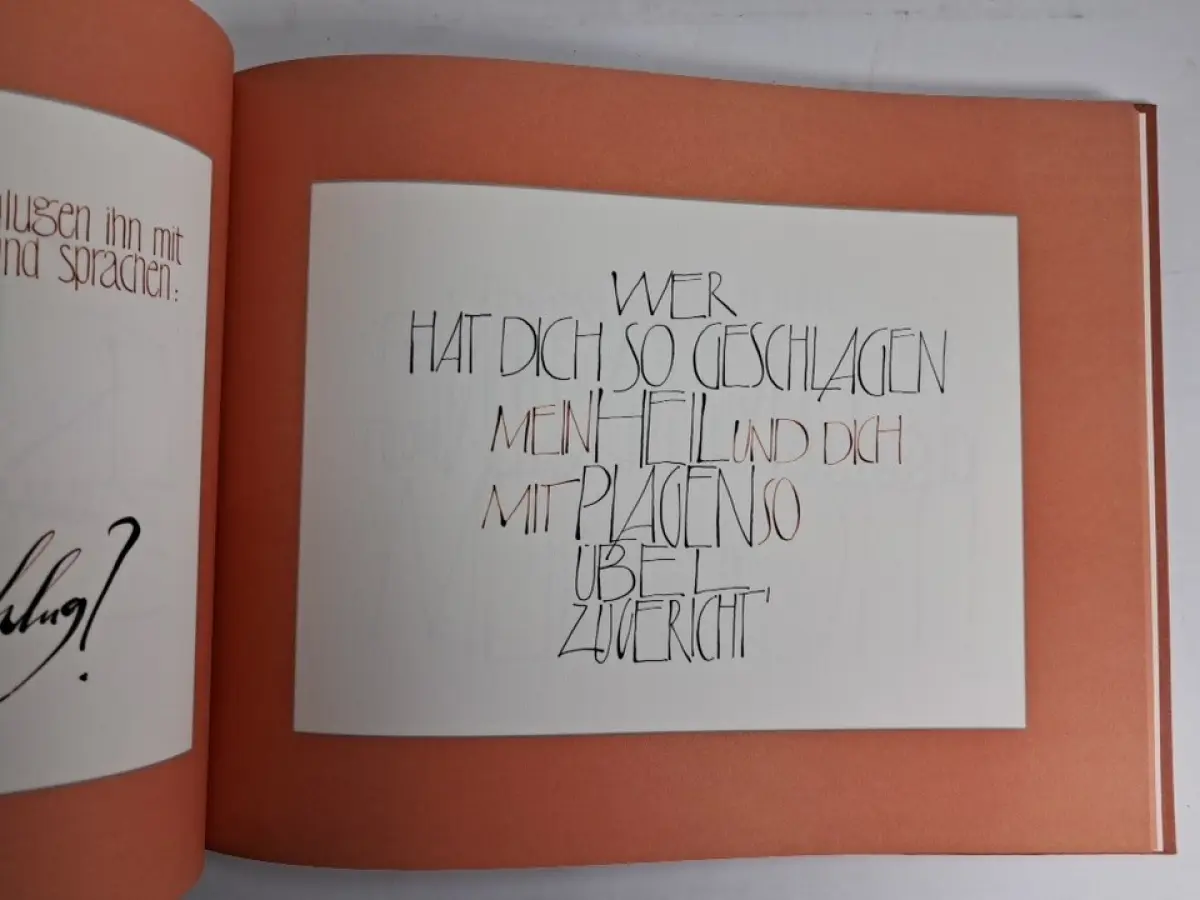 ihn mit
sprachen:
WER
HAT DICH SO GESCHLAGEN
MEIN HEIL UND DICH
MIT PLAGEN SO
ÜBEL
ZUGERICHT'